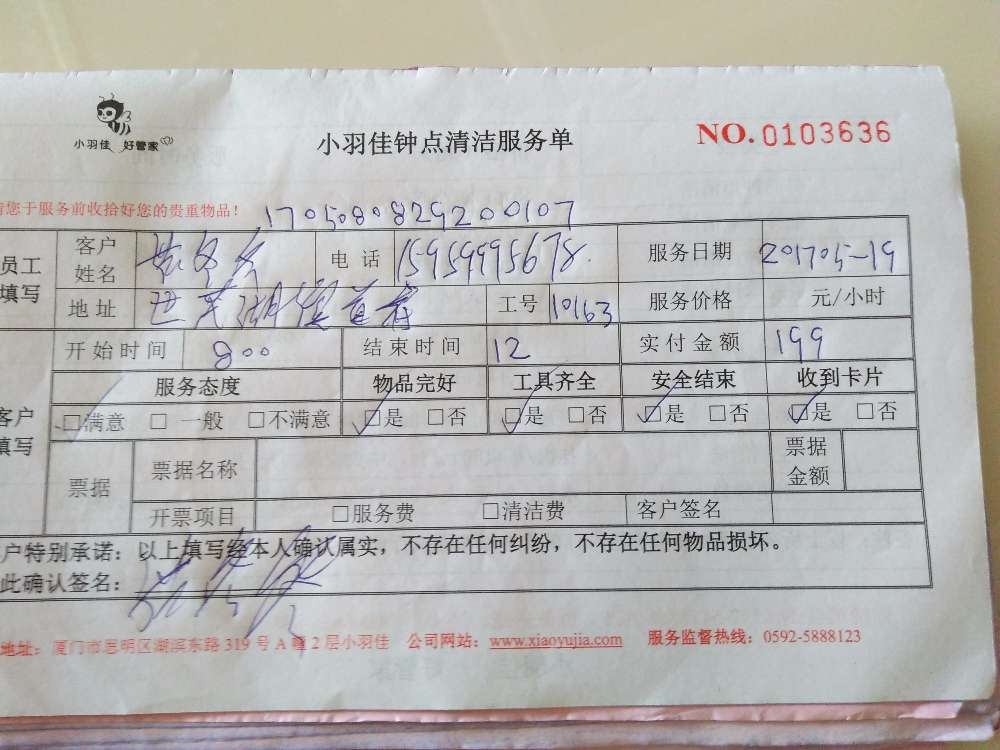 小羽佳 好管家
小羽佳钟点清洁服务单
NO.0103636
请您于服务前收拾好您的贵重物品！
1705080829200107
员工填写
客户姓名
电 话 15959995678.
服务日期 201705-19
地 址
工号 10163
服务价格 元/小时
开始时间 800
结束时间 12
实付金额 199
客户填写
服务态度 物品完好 工具齐全 安全结束 收到卡片
☑满意 □ 一般 □不满意 ☑是 □否 ☑是 □否 ☑是 □否 ☑是 □否
票据
票据名称
票据金额
开票项目 □服务费 □清洁费 客户签名
客户特别承诺：以上填写经本人确认属实，不存在任何纠纷，不存在任何物品损坏。
此确认签名：
地址：厦门市思明区湖滨东路 319 号 A 幢 2 层小羽佳 公司网站：www.xiaoyujia.com 服务监督热线：0592-5888123